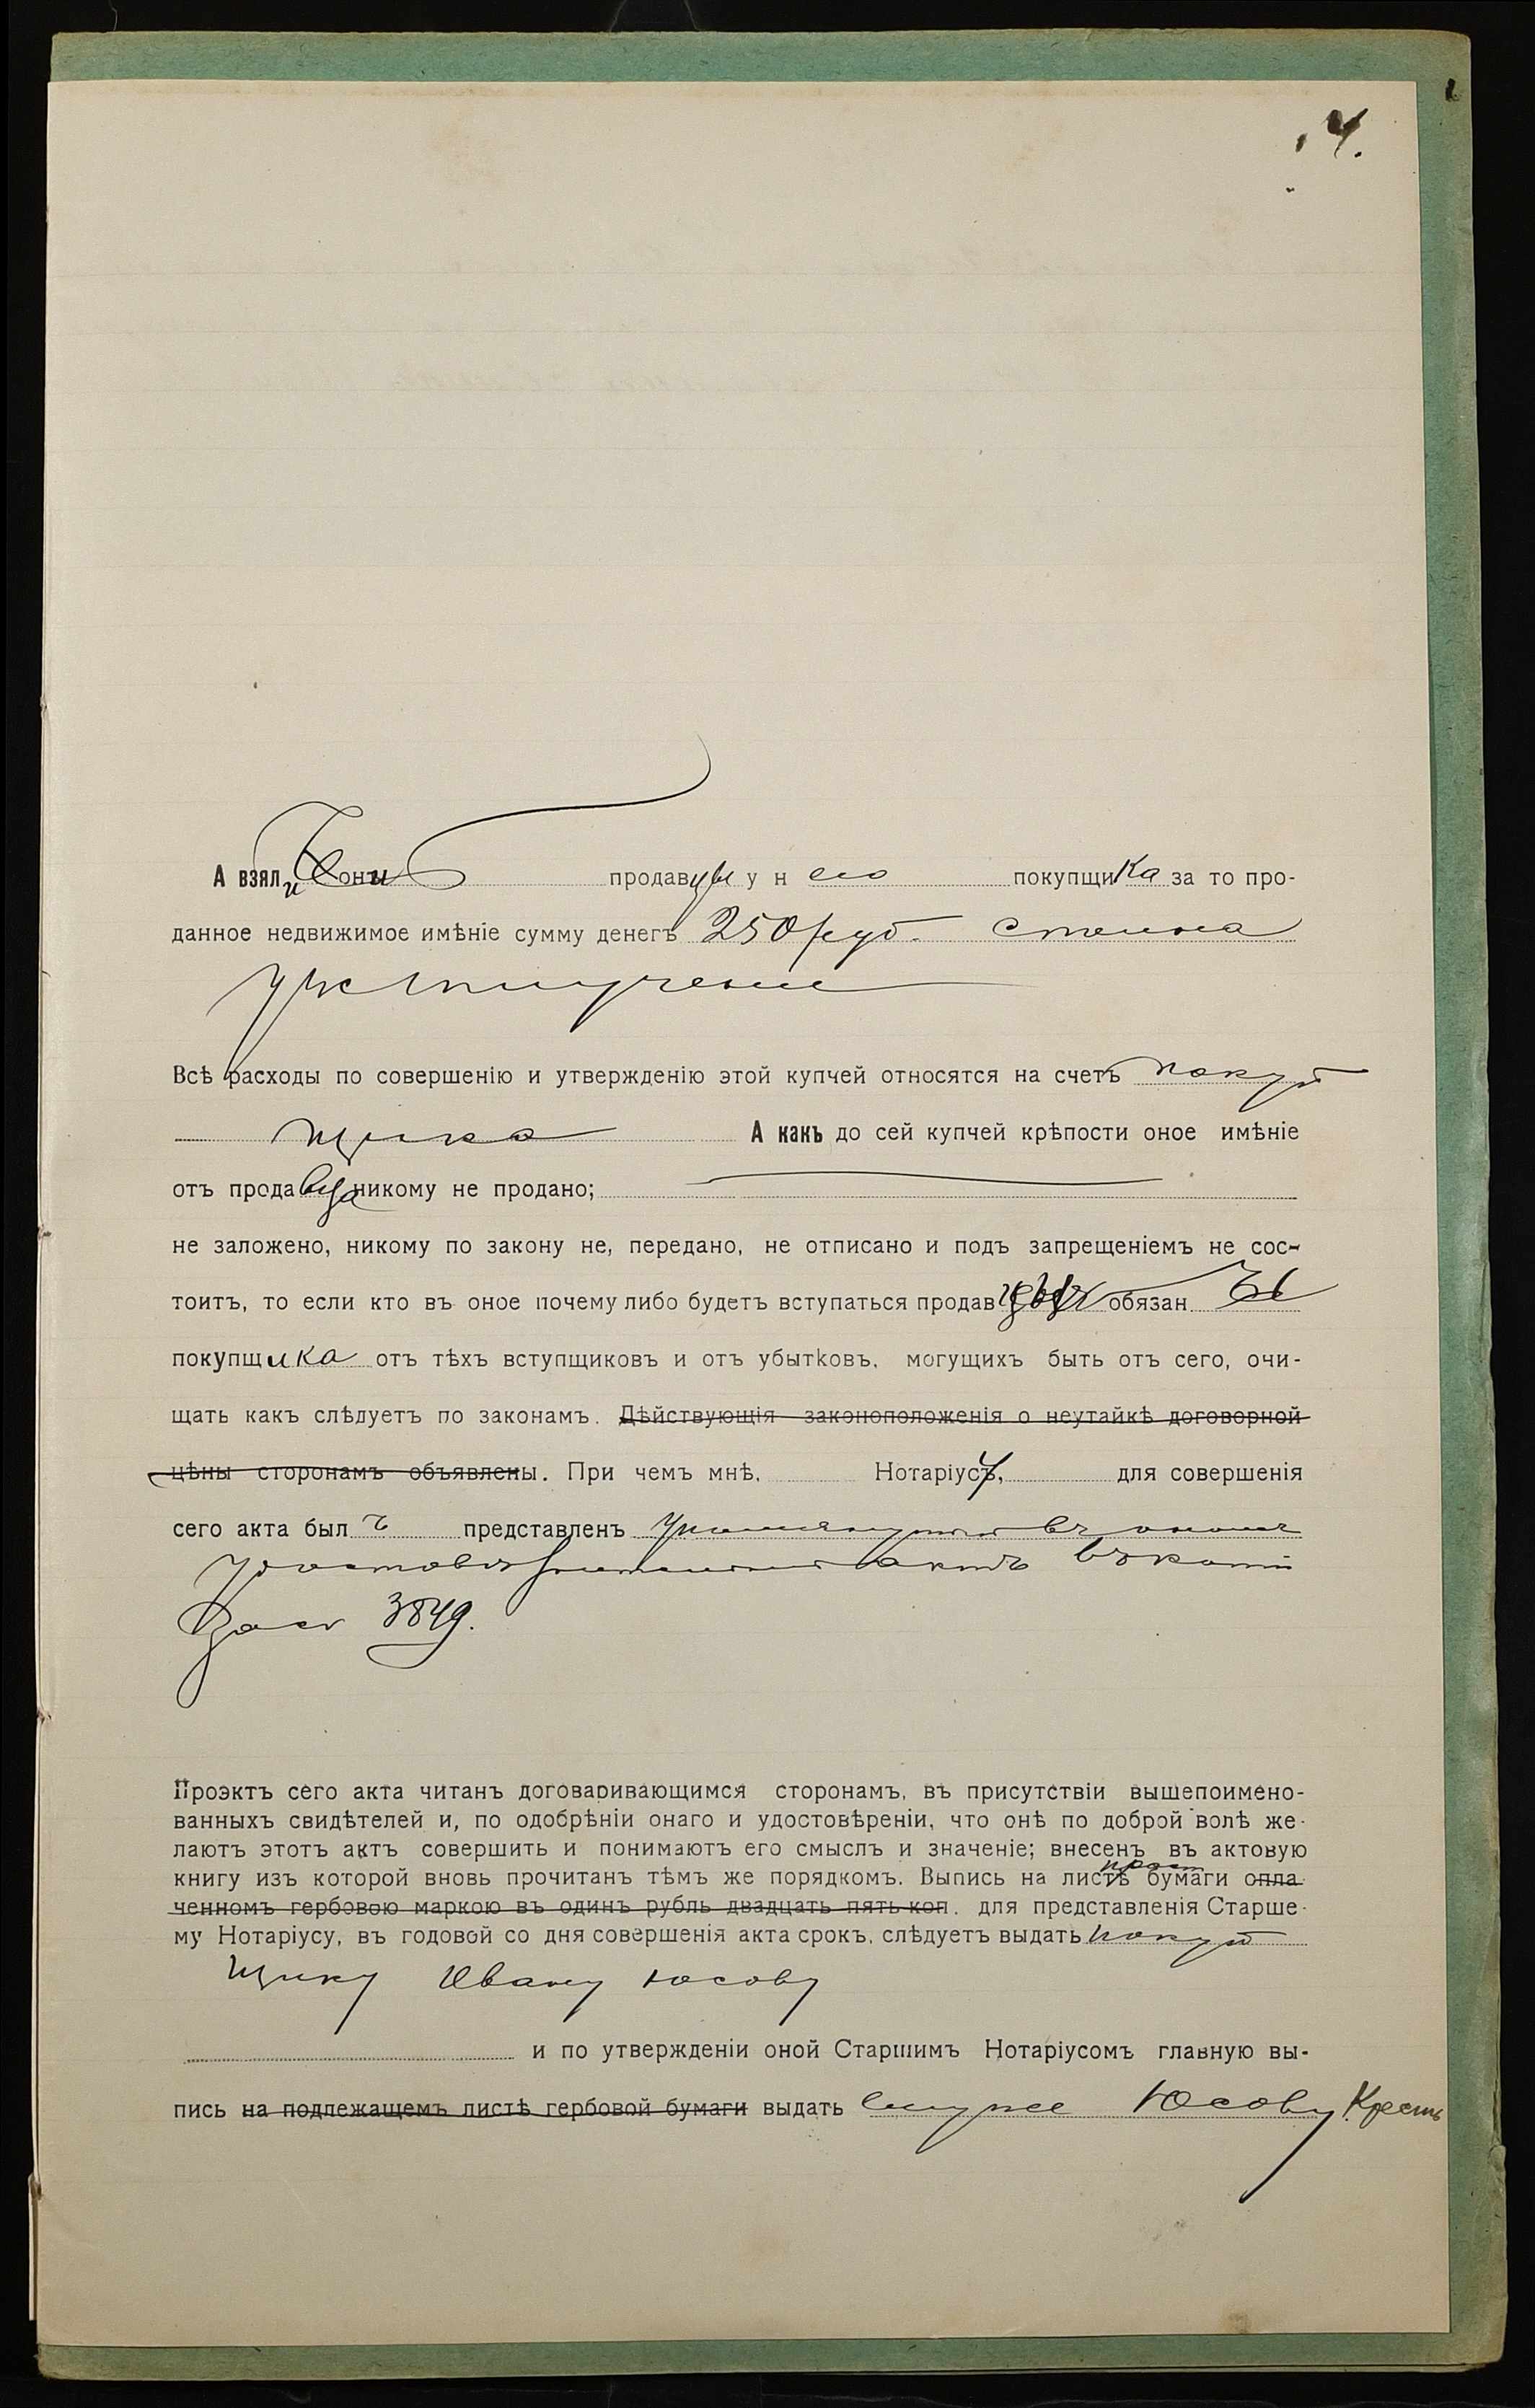 4.
А взяли они продавцы у него покупщика за то про-
данное недвижимое имѣніе сумму денегъ 250 руб.
уже
Всѣ расходы по совершенію и утвержденію этой купчей относятся на счетъ покуп
щика А какъ до сей купчей крѣпости оное имѣніе
отъ продавца никому не продано;
не заложено, никому по закону не, передано, не отписано и подъ запрещеніемъ не сос-
тоитъ, то если кто въ оное почему либо будетъ вступаться продав обязан
покупщика отъ тѣхъ вступщиковъ и отъ убытковъ, могущихъ быть отъ сего, очи-
щать какъ слѣдуетъ по законамъ. Дѣйствующія законоположенія о неутайкѣ договорной
цѣны сторонамъ объявлены. При чемъ мнѣ, Нотаріусу, для совершенія
сего акта былъ представленъ упомянутый въ
удостовѣрительный актъ въ
3849.
Проэктъ сего акта читанъ договаривающимся сторонамъ, въ присутствіи вышепоимено-
ванныхъ свидѣтелей и, по одобрѣніи онаго и удостовѣреніи, что онѣ по доброй волѣ же-
лаютъ этотъ актъ совершить и понимаютъ его смыслъ и значеніе; внесенъ въ актовую
книгу изъ которой вновь прочитанъ тѣмъ же порядкомъ. Выпись на листѣ прост бумаги опла-
ченномъ гербовою маркою въ одинъ рубль двадцать пять коп. для представленія Старше-
му Нотаріусу, въ годовой со дня совершенія акта срокъ, слѣдуетъ выдать покуп
щику Ивану Юсову
и по утвержденіи оной Старшимъ Нотаріусомъ главную вы-
пись на подлежащемъ листѣ гербовой бумаги выдать ему же Юсову Крест